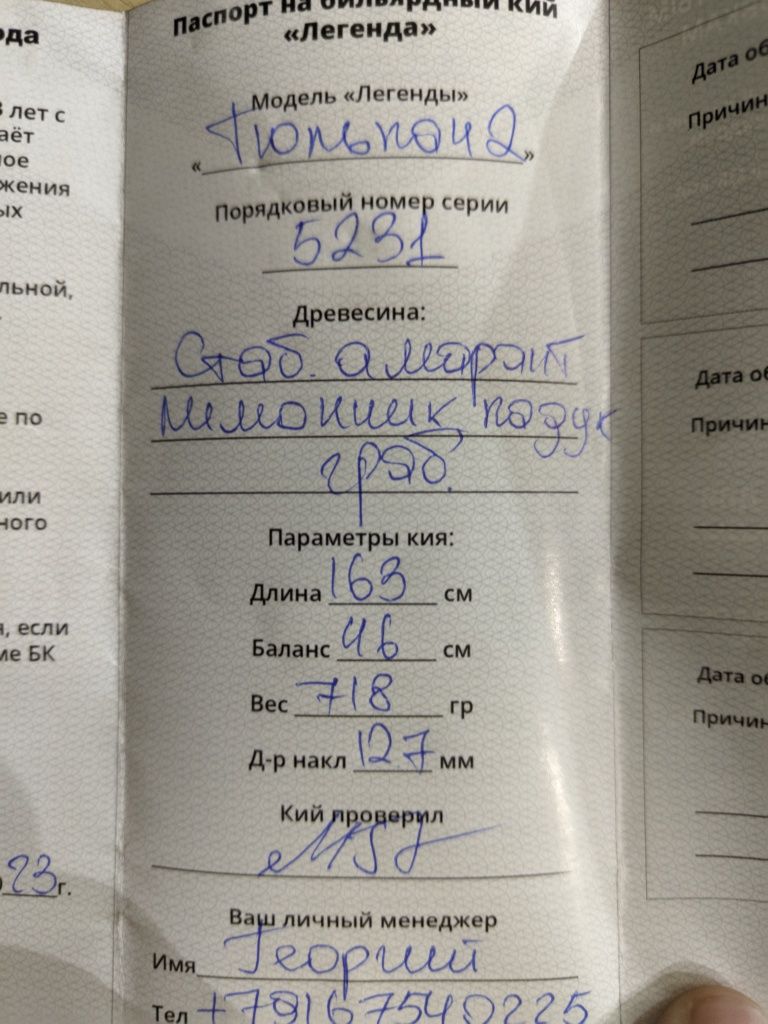 Паспорт на бильярдный кий
«Легенда»
Модель «Легенды»
«Тюльпан 2»
Порядковый номер серии
5231
Древесина:
Стаб. амарант
лимонник, падук
граб.
Параметры кия:
Длина 163 см
Баланс 46 см
Вес 718 гр
Д-р накл 127 мм
Кий проверил
Ваш личный менеджер
Имя Георгий
Тел +79167540225
ода
лет с
аёт
ое
жения
ых
льной,
е по
или
ного
, если
ме БК
23г.
Дата об
Причин
Дата об
Причин
Дата об
Причин